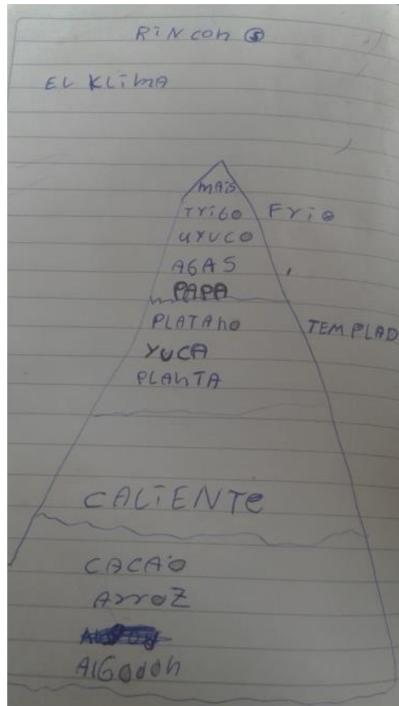 RiNcon ⑤
EL KLiMA
MAiS
TriGo FriO
UYUCO
AGAS
PAPA
PLATANO TEMPLAD
YUCA
PLANTA
CALiENTe
CACAO
ArroZ
AlGodon